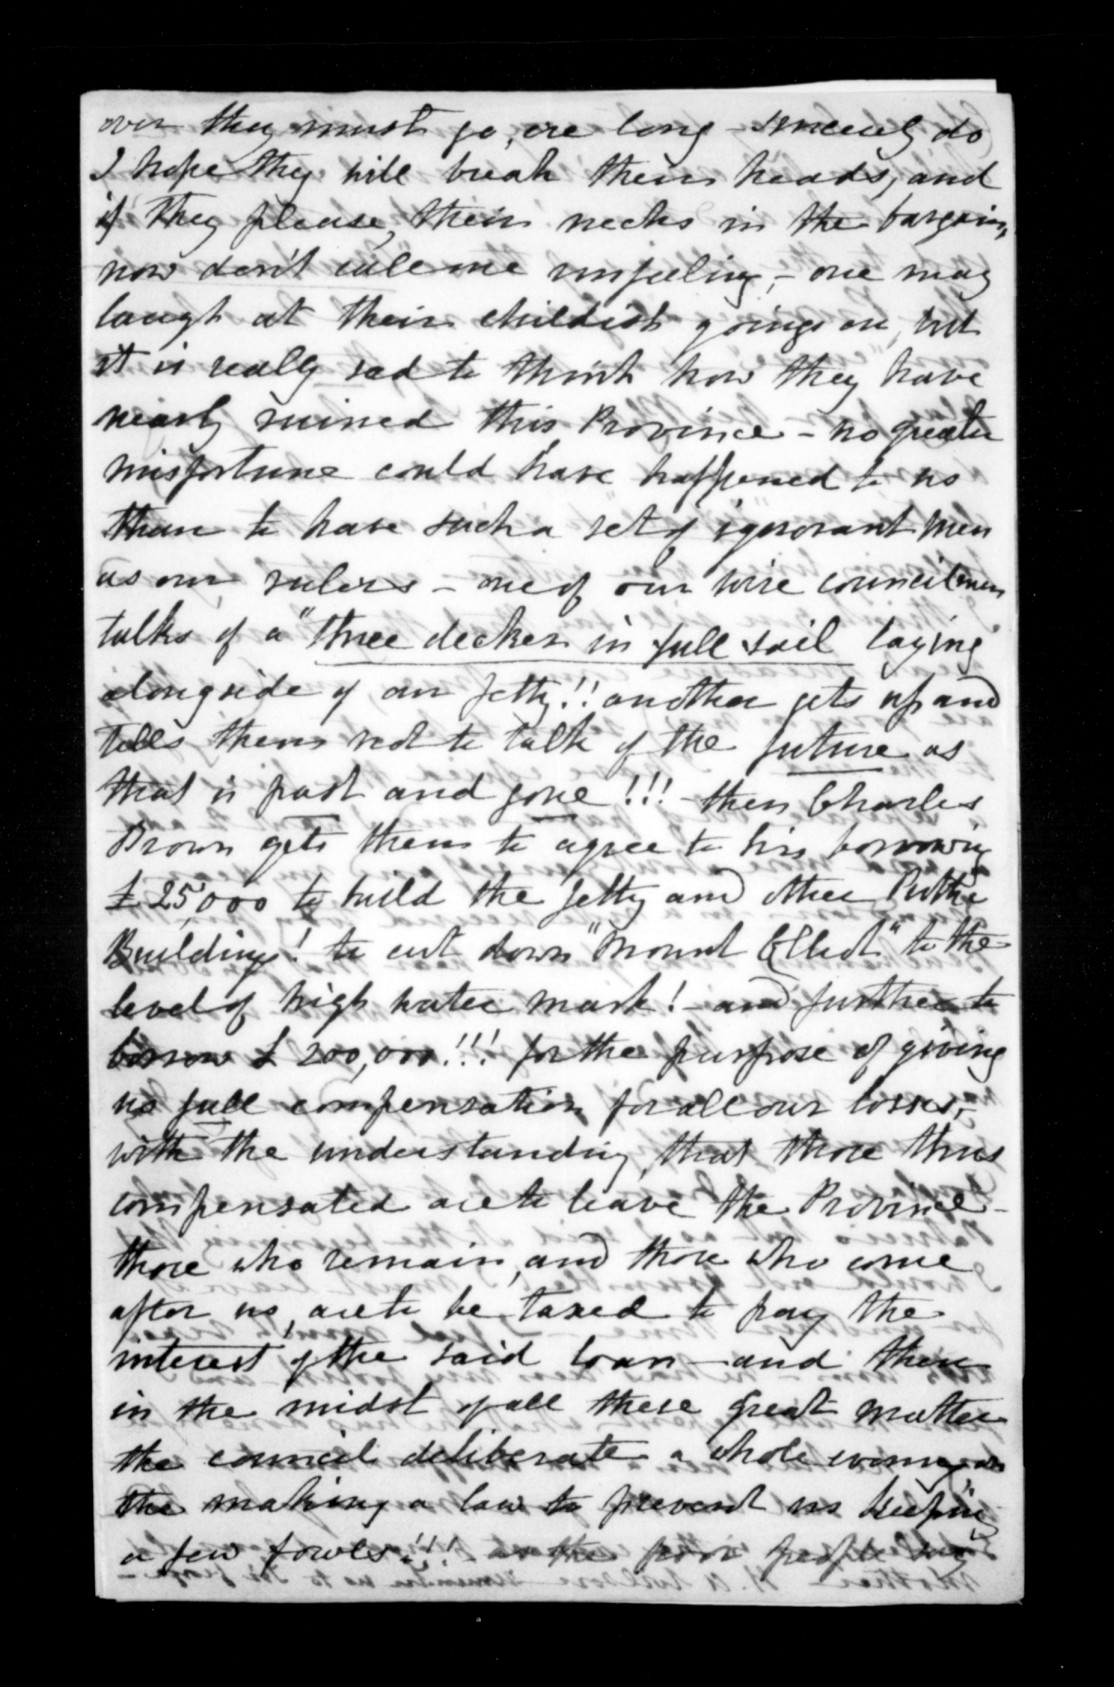 over they must go, ere long - sincerely do
I hope they will break their heads, and
if they please, their necks in the bargain,
now don't call me unfeeling, - one may
laugh at their childish goings on, but
it is really sad to think how they have
nearly ruined this Province - no greater
misfortune could have happened to us
than to have such a set of ignorant men
as our rulers - one of our wise councilmen
talks of a "three decker in full sail laying"
alongside of our Jetty!! another gets up and
tells them not to talk of the future as
that is past and gone!!! - then Charles
Brown gets them to agree to his borrowing
£25,000 to build the Jetty and other Public
Buildings! to cut down "Mount Elliot" to the
level of high water mark! - and further to
borrow £200,000!!! for the purpose of giving
us full compensation for all our losses,
with the understanding, that those thus
compensated are to leave the Province -
those who remain, and those who come
after us, are to be taxed to pay the
interest of the said loan - and then
in the midst of all these great matters
the council deliberate a whole evening on
the making a law to prevent us keeping
a few fowls!!! - as the poor people say